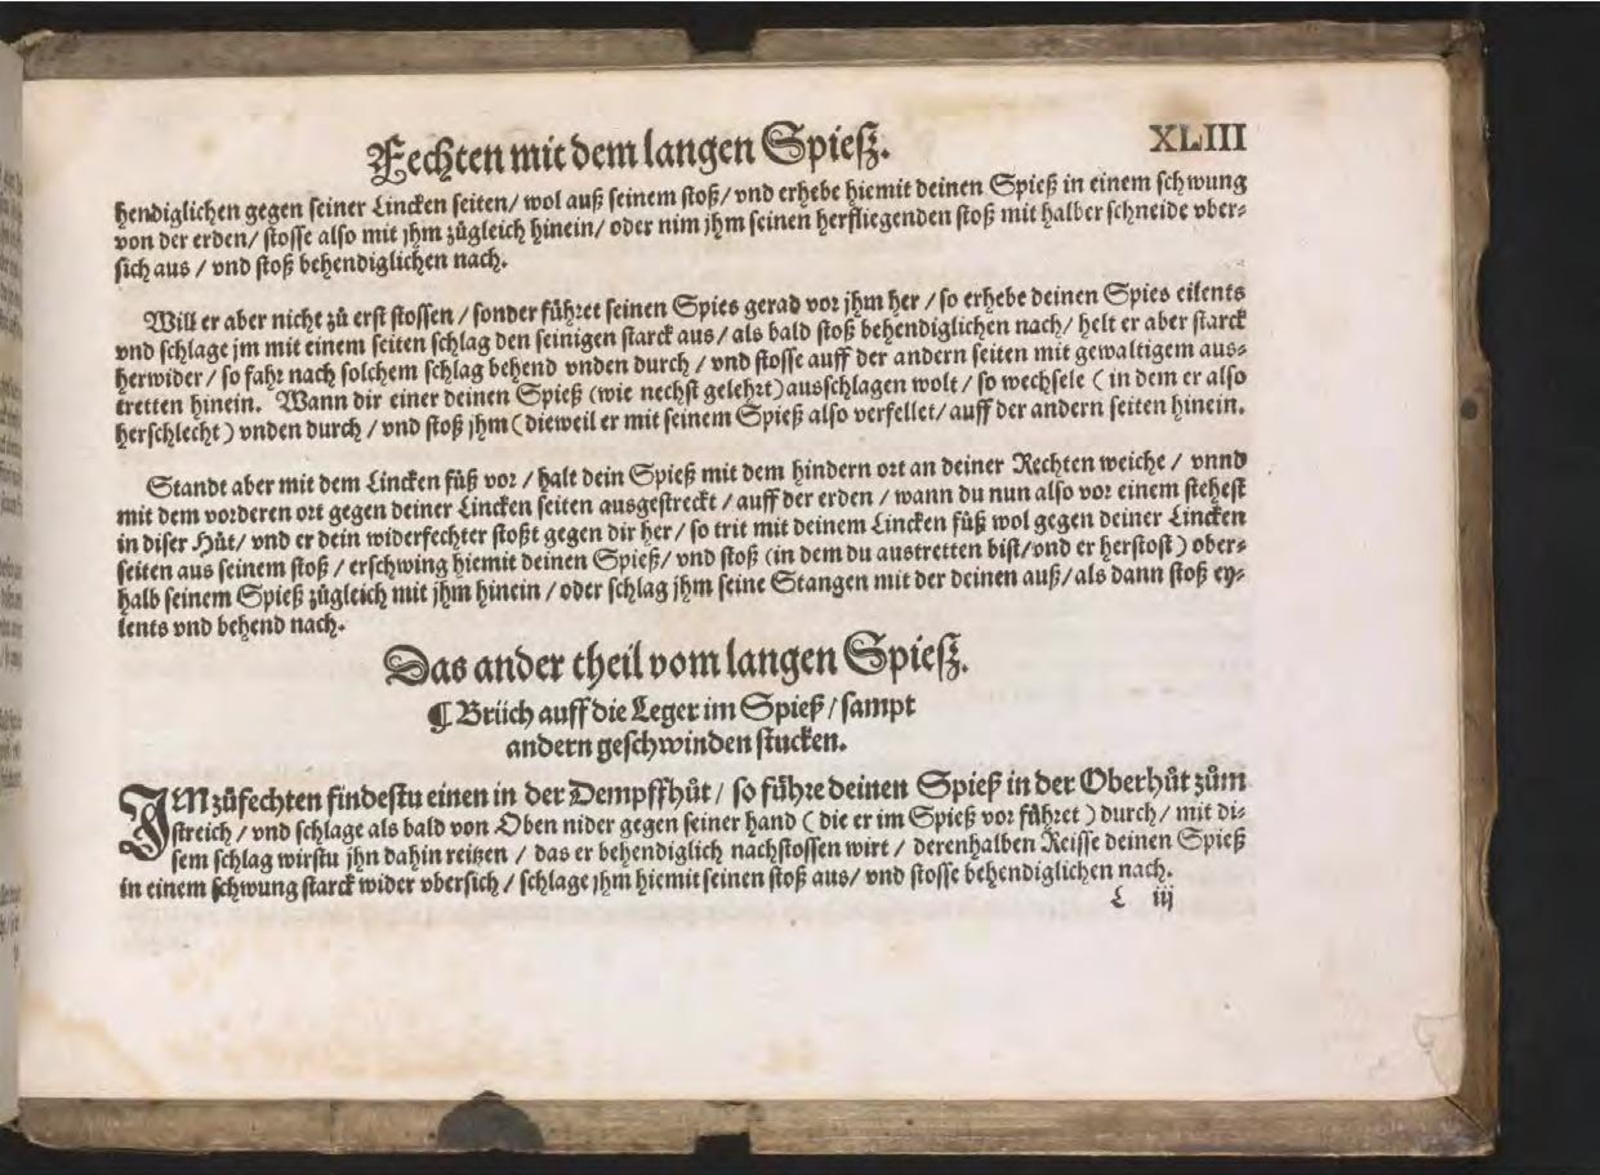 Fechten mit dem langen Spiesz.
XLIII
hendiglichen gegen seiner Lincken seiten/ wol auß seinem stoß/ vnd erhebe hiemit deinen Spieß in einem schwung
von der erden/ stosse also mit jhm zůgleich hinein/ oder nim jhm seinen herfliegenden stoß mit halber schneide vber-
sich aus / vnd stoß behendiglichen nach.
Will er aber nicht zů erst stossen / sonder führet seinen Spies gerad vor jhm her / so erhebe deinen Spies eilents
vnd schlage jm mit einem seiten schlag den seinigen starck aus/ als bald stoß behendiglichen nach/ helt er aber starck
herwider / so fahr nach solchem schlag behend vnden durch / vnd stosse auff der andern seiten mit gewaltigem aus-
tretten hinein. Wann dir einer deinen Spieß (wie nechst gelehrt) ausschlagen wolt / so wechsele ( in dem er also
herschlecht ) vnden durch / vnd stoß jhm ( dieweil er mit seinem Spieß also verfellet/ auff der andern seiten hinein.
Standt aber mit dem Lincken fůß vor / halt dein Spieß mit dem hindern ort an deiner Rechten weiche / vnnd
mit dem vorderen ort gegen deiner Lincken seiten ausgestreckt / auff der erden / wann du nun also vor einem stehest
in diser Hůt/ vnd er dein widerfechter stoßt gegen dir her / so trit mit deinem Lincken fůß wol gegen deiner Lincken
seiten aus seinem stoß / erschwing hiemit deinen Spieß/ vnd stoß (in dem du austretten bist/vnd er herstost ) ober-
halb seinem Spieß zůgleich mit jhm hinein / oder schlag jhm seine Stangen mit der deinen auß/ als dann stoß ey-
lents vnd behend nach.
Das ander theil vom langen Spiesz.
¶ Brüch auff die Leger im Spieß / sampt
andern geschwinden stucken.
IM zůfechten findestu einen in der Dempffhůt / so führe deinen Spieß in der Oberhůt zům
streich / vnd schlage als bald von Oben nider gegen seiner hand ( die er im Spieß vor führet ) durch/ mit di-
sem schlag wirstu jhn dahin reitzen / das er behendiglich nachstossen wirt / derenhalben Reisse deinen Spieß
in einem schwung starck wider vbersich / schlage jhm hiemit seinen stoß aus/ vnd stosse behendiglichen nach.
L iij